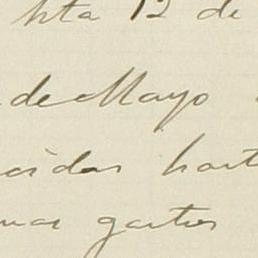 hta 12 de
de Mayo
cidas hast
mas gastos